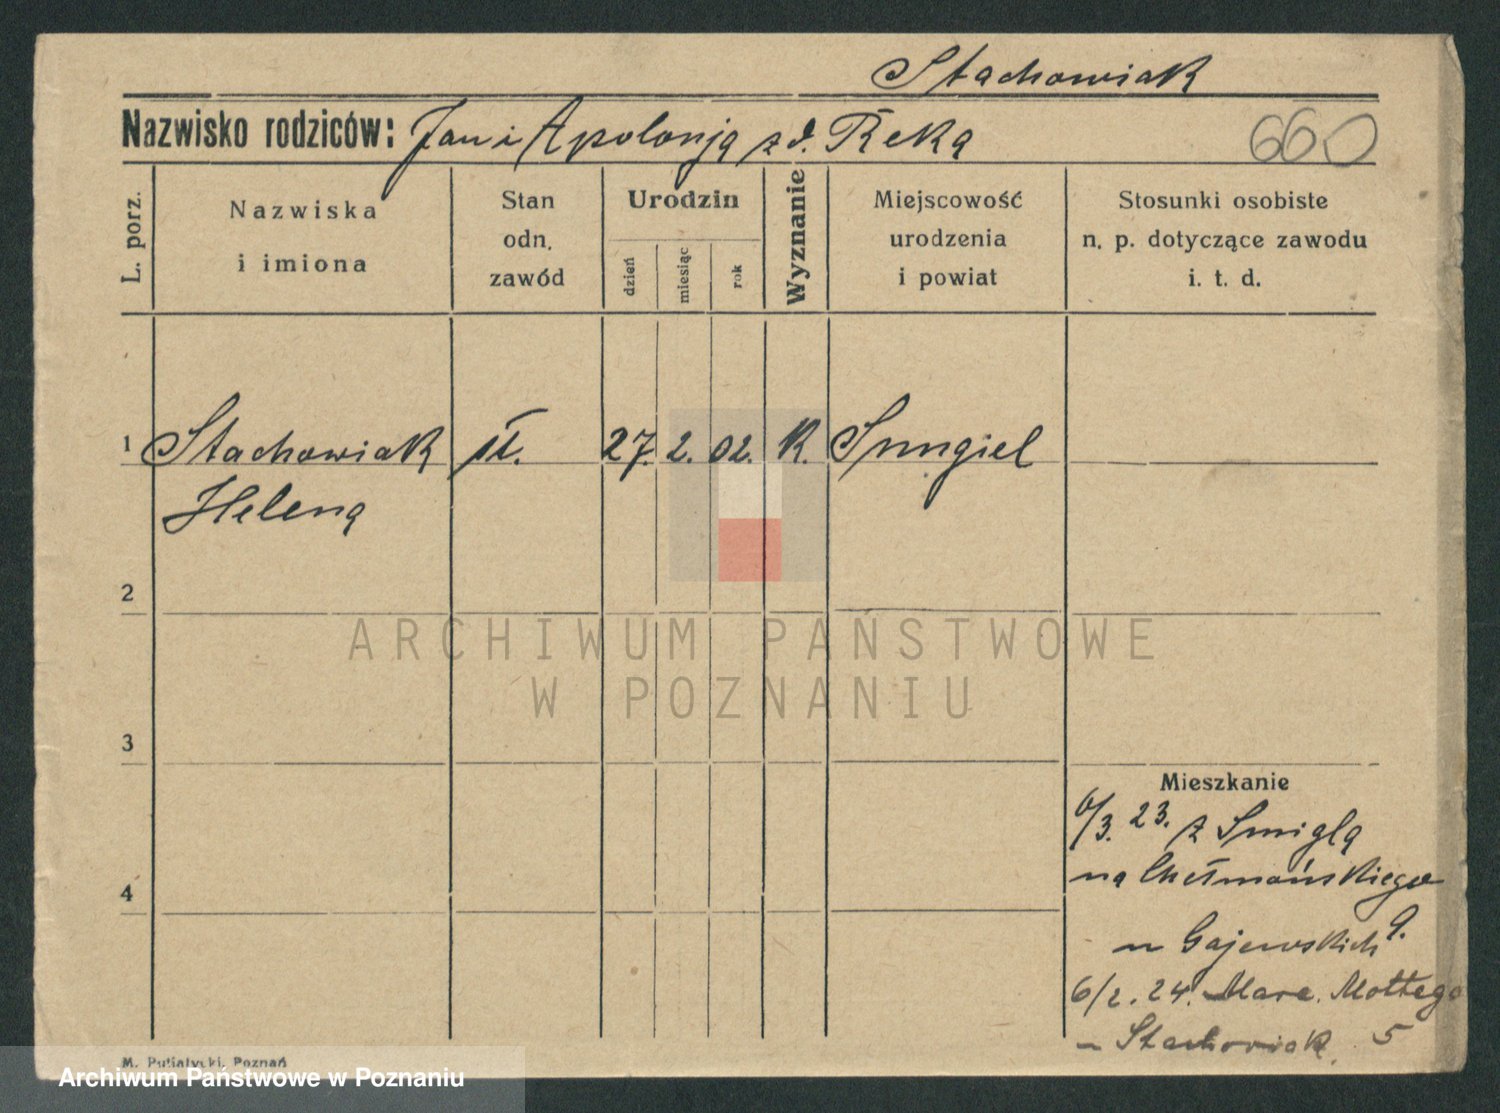 Stachowiak
Nazwisko rodziców: Jan i Apolonja z d. Ręka
660
L. porz.
Nazwiska
i imiona
Stan
odn.
zawód
Urodzin
dzień
miesiąc
rok
Wyznanie
Miejscowość
urodzenia
i powiat
Stosunki osobiste
n. p. dotyczące zawodu
i. t. d.
1 Stachowiak sł. 27. 2. 02. K. Szmigiel
Helena
2
ARCHIWUM PAŃSTWOWE
W POZNANIU
3
Mieszkanie
6/3. 23. z Smigla
na Chełmońskiego
u Gajewskich 9.
6/2. 24. Marc. Mottego
u Stachowiak. 5
4
M. Putiatycki, Poznań
Archiwum Państwowe w Poznaniu